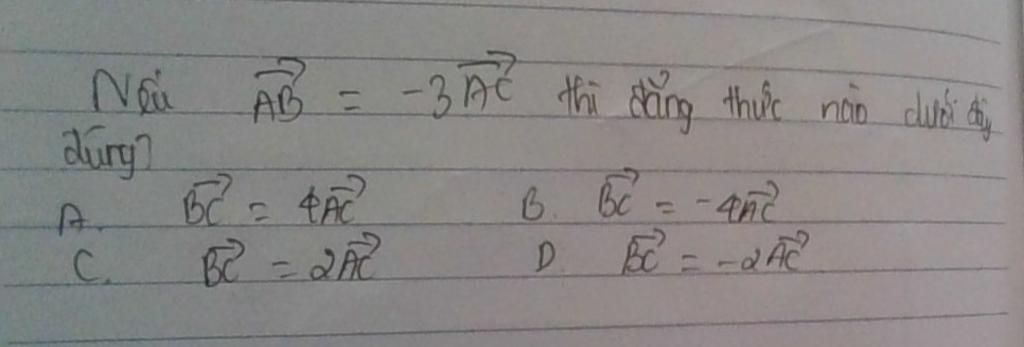 Nếu $\overrightarrow{AB} = -3\overrightarrow{AC}$ thì đẳng thức nào dưới đây
đúng?
A. $\overrightarrow{BC} = 4\overrightarrow{AC}$ B. $\overrightarrow{BC} = -4\overrightarrow{AC}$
C. $\overrightarrow{BC} = 2\overrightarrow{AC}$ D. $\overrightarrow{BC} = -2\overrightarrow{AC}$